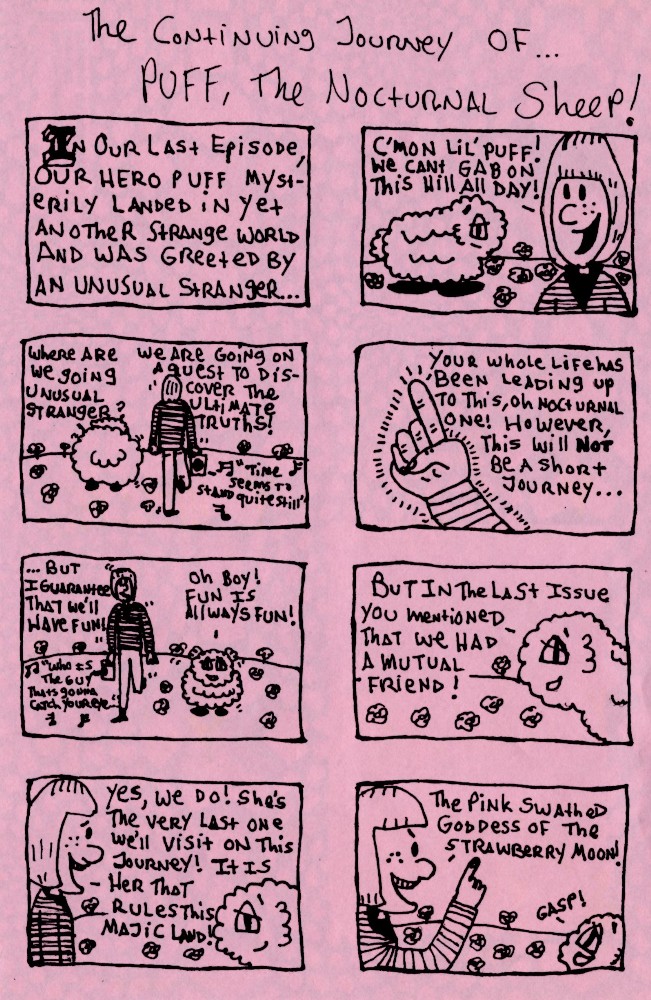 The Continuing Journey OF...
PUFF, The Nocturnal Sheep!
In Our Last Episode,
Our Hero Puff Myst-
erily Landed in Yet
Another Strange World
And was Greeted By
An Unusual Stranger...
C'mon Lil' Puff!
We cant Gab on
This Hill All Day!
Where Are
we going
Unusual
Stranger?
We are going on
a quest to Dis-
cover The
Ultimate
Truths!
"Time
seems to
stand quite still"
Your whole life has
Been Leading up
To This, Oh Nocturnal
One! However,
This will NOT
Be A Short
Journey...
... But
I Guarantee
That we'll
Have Fun!
"Who is
The Guy
Thats gonna
Catch Your eye"
Oh Boy!
Fun is
Allways Fun!
But In The Last Issue
You mentioned
That we had
A Mutual
Friend!
Yes, we do! She's
The very Last one
we'll visit on This
Journey! It is
Her That
Rules This
Majic Land!
The Pink Swathed
Goddess of The
Strawberry Moon!
Gasp!